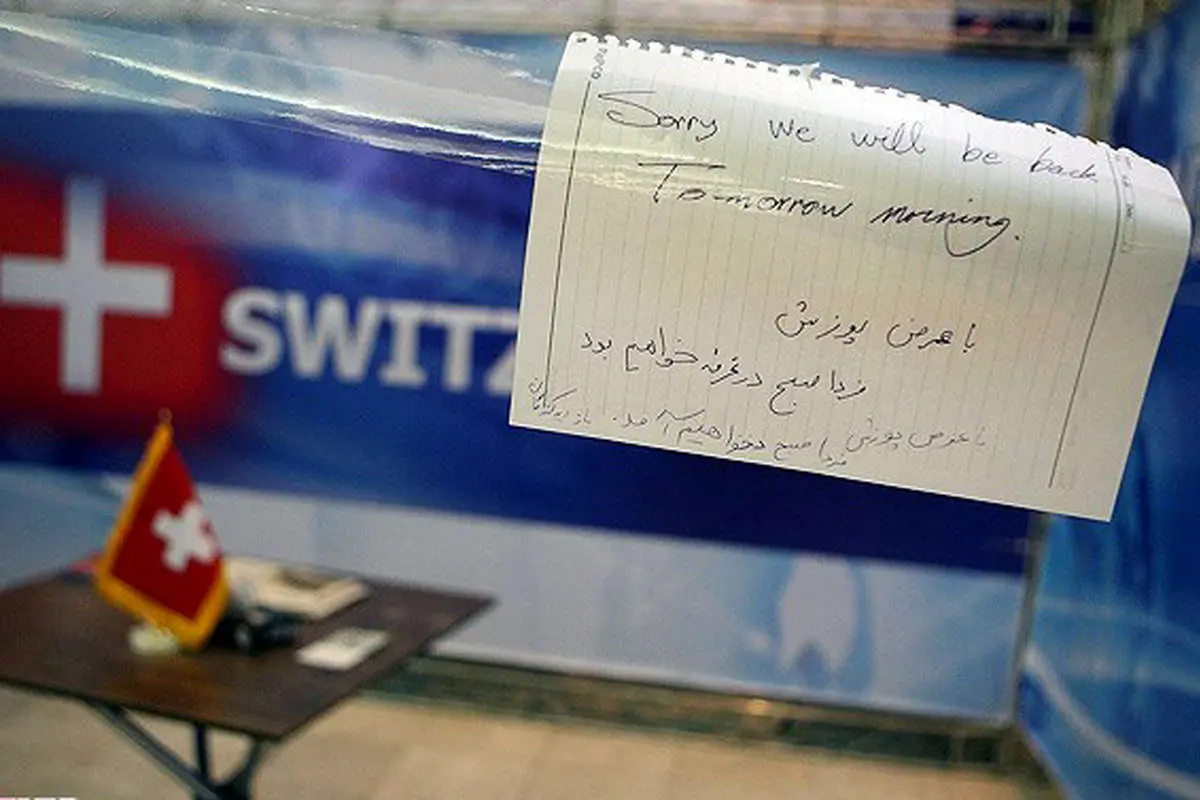 Sorry we will be back
Tomorrow morning.
با عرض پوزش
فردا صبح در غرفه خواهیم بود
با عرض پوزش
فردا صبح خواهیم آمد.
SWITZ